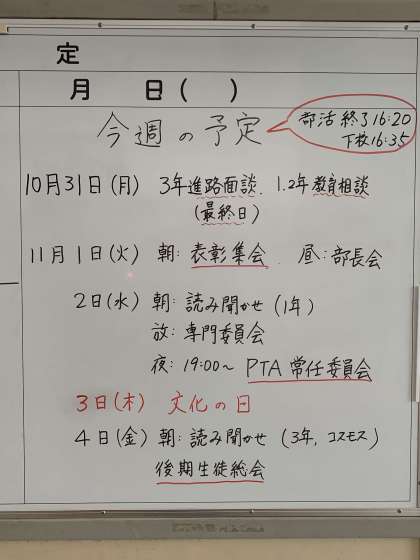 定
月 日( )
今週の予定
部活終了16:20
下校16:35
10月31日(月) 3年進路面談. 1.2年教育相談
(最終日)
11月1日(火) 朝: 表彰集会 昼: 部長会
2日(水) 朝: 読み聞かせ (1年)
放: 専門委員会
夜: 19:00~ PTA常任委員会
3日(木) 文化の日
4日(金) 朝: 読み聞かせ (3年, コスモス)
後期生徒総会